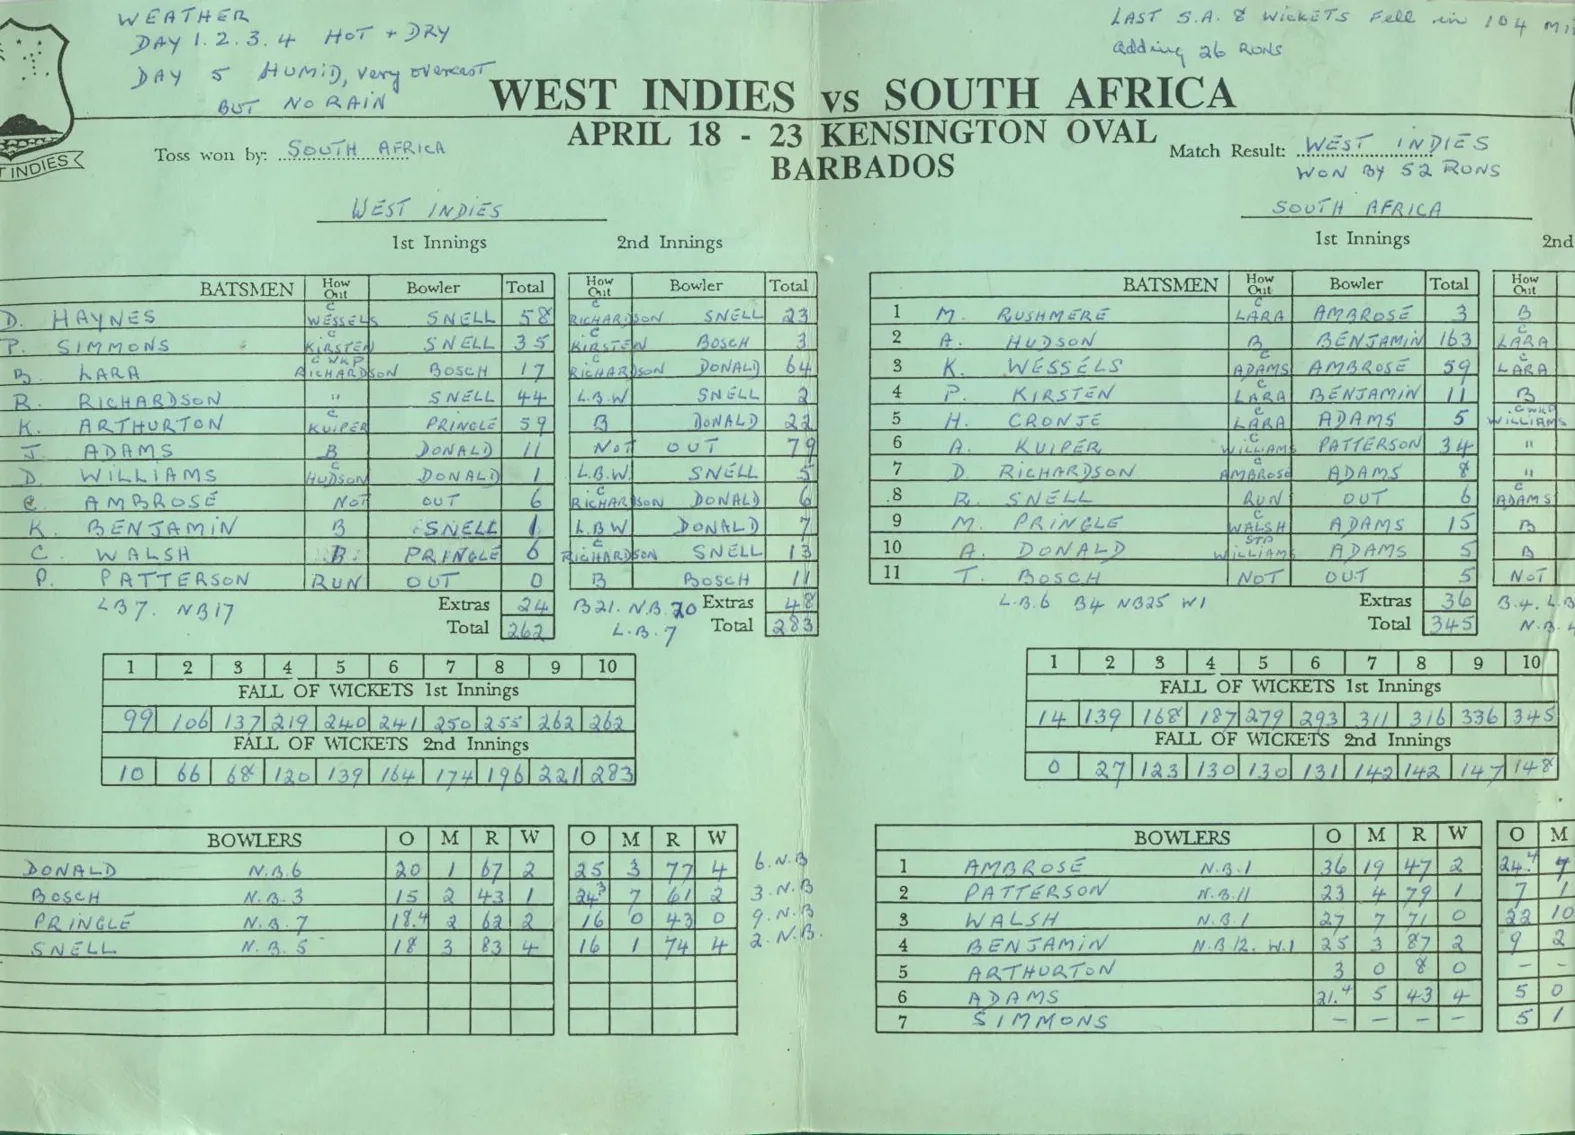 WEATHER
DAY 1.2.3.4 HOT + DRY
DAY 5 HUMID, very overcast
BUT NO RAIN
LAST S.A. 8 WICKETS Fell in 104
adding 26 RUNS
WEST INDIES vs SOUTH AFRICA
APRIL 18 - 23 KENSINGTON OVAL
BARBADOS
INDIES
Toss won by: SOUTH AFRICA
Match Result: WEST INDIES
WON BY 52 RUNS
WEST INDIES
1st Innings 2nd Innings
BATSMEN How Out Bowler Total How Out Bowler Total
D. HAYNES c WESSELS SNELL 58 c RICHARDSON SNELL 23
P. SIMMONS c KIRSTEN SNELL 35 c KIRSTEN BOSCH 3
B. LARA c WKP RICHARDSON BOSCH 17 c RICHARDSON DONALD 64
R. RICHARDSON " SNELL 44 L.B.W SNELL 2
K. ARTHURTON c KUIPER PRINGLE 59 B DONALD 22
J. ADAMS B DONALD 11 NOT OUT 79
D. WILLIAMS c HUDSON DONALD 1 L.B.W. SNELL 5
C. AMBROSE NOT OUT 6 c RICHARDSON DONALD 6
K. BENJAMIN B SNELL 1 L.B.W DONALD 7
C. WALSH B. PRINGLE 6 c RICHARDSON SNELL 13
P. PATTERSON RUN OUT 0 B BOSCH 11
LB7. NB17 Extras 24 B21. N.B. 20 Extras 48
Total 262 L.B.7 Total 283
1 2 3 4 5 6 7 8 9 10
FALL OF WICKETS 1st Innings
99 106 137 219 240 241 250 255 262 262
FALL OF WICKETS 2nd Innings
10 66 68 120 139 164 174 196 221 283
BOWLERS O M R W O M R W
DONALD N.B.6 20 1 67 2 25 3 77 4 6.N.B
BOSCH N.B.3 15 2 43 1 24.3 7 61 2 3.N.B
PRINGLE N.B.7 18.4 2 62 2 16 0 43 0 9.N.B
SNELL N.B.5 18 3 83 4 16 1 74 4 2.N.B.
SOUTH AFRICA
1st Innings 2nd
BATSMEN How Out Bowler Total How Out
1 M. RUSHMERE c LARA AMBROSE 3 B
2 A. HUDSON B BENJAMIN 163 c LARA
3 K. WESSELS c ADAMS AMBROSE 59 c LARA
4 P. KIRSTEN c LARA BENJAMIN 11 B
5 H. CRONJE c LARA ADAMS 5 c WKP WILLIAMS
6 A. KUIPER c WILLIAMS PATTERSON 34 "
7 D. RICHARDSON c AMBROSE ADAMS 8 "
8 R. SNELL RUN OUT 6 c ADAMS
9 M. PRINGLE c WALSH ADAMS 15 B
10 A. DONALD STP WILLIAMS ADAMS 5 B
11 T. BOSCH NOT OUT 5 NOT
L.B.6 B4 NB25 W1 Extras 36 B.4. L.B
Total 345 N.B.
1 2 3 4 5 6 7 8 9 10
FALL OF WICKETS 1st Innings
14 139 168 187 279 293 311 316 336 345
FALL OF WICKETS 2nd Innings
0 27 123 130 130 131 142 142 147 148
BOWLERS O M R W O M
1 AMBROSE N.B.1 36 19 47 2 24.4 7
2 PATTERSON N.B.11 23 4 79 1 7 1
3 WALSH N.B.1 27 7 71 0 22 10
4 BENJAMIN N.B 12. W.1 25 3 87 2 9 2
5 ARTHURTON 3 0 8 0 - -
6 ADAMS 21.4 5 43 4 5 0
7 SIMMONS - - - - 5 1